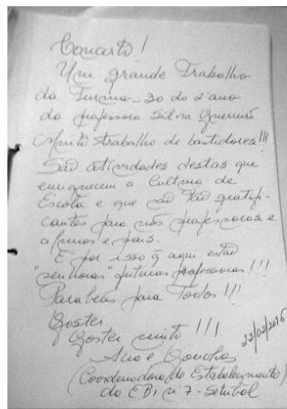 Concerto!
Um grande Trabalho
da Turma - 30 do 2º ano
da professora Silvia
Muito trabalho de bastidores!!!
São atividades destas que
enriquecem a Cultura de
Escola e que são tão gratifi-
cantes para nós professoras e
alunos e pais.
E por isso q aqui estão
"senhoras" futuras professoras!!!
Parabéns para Todos!!!
Gostei
Gostei muito!!!
22/02/2016
(Coordenadora de Estabelecimento)
da EB1 nº 7 - Setúbal